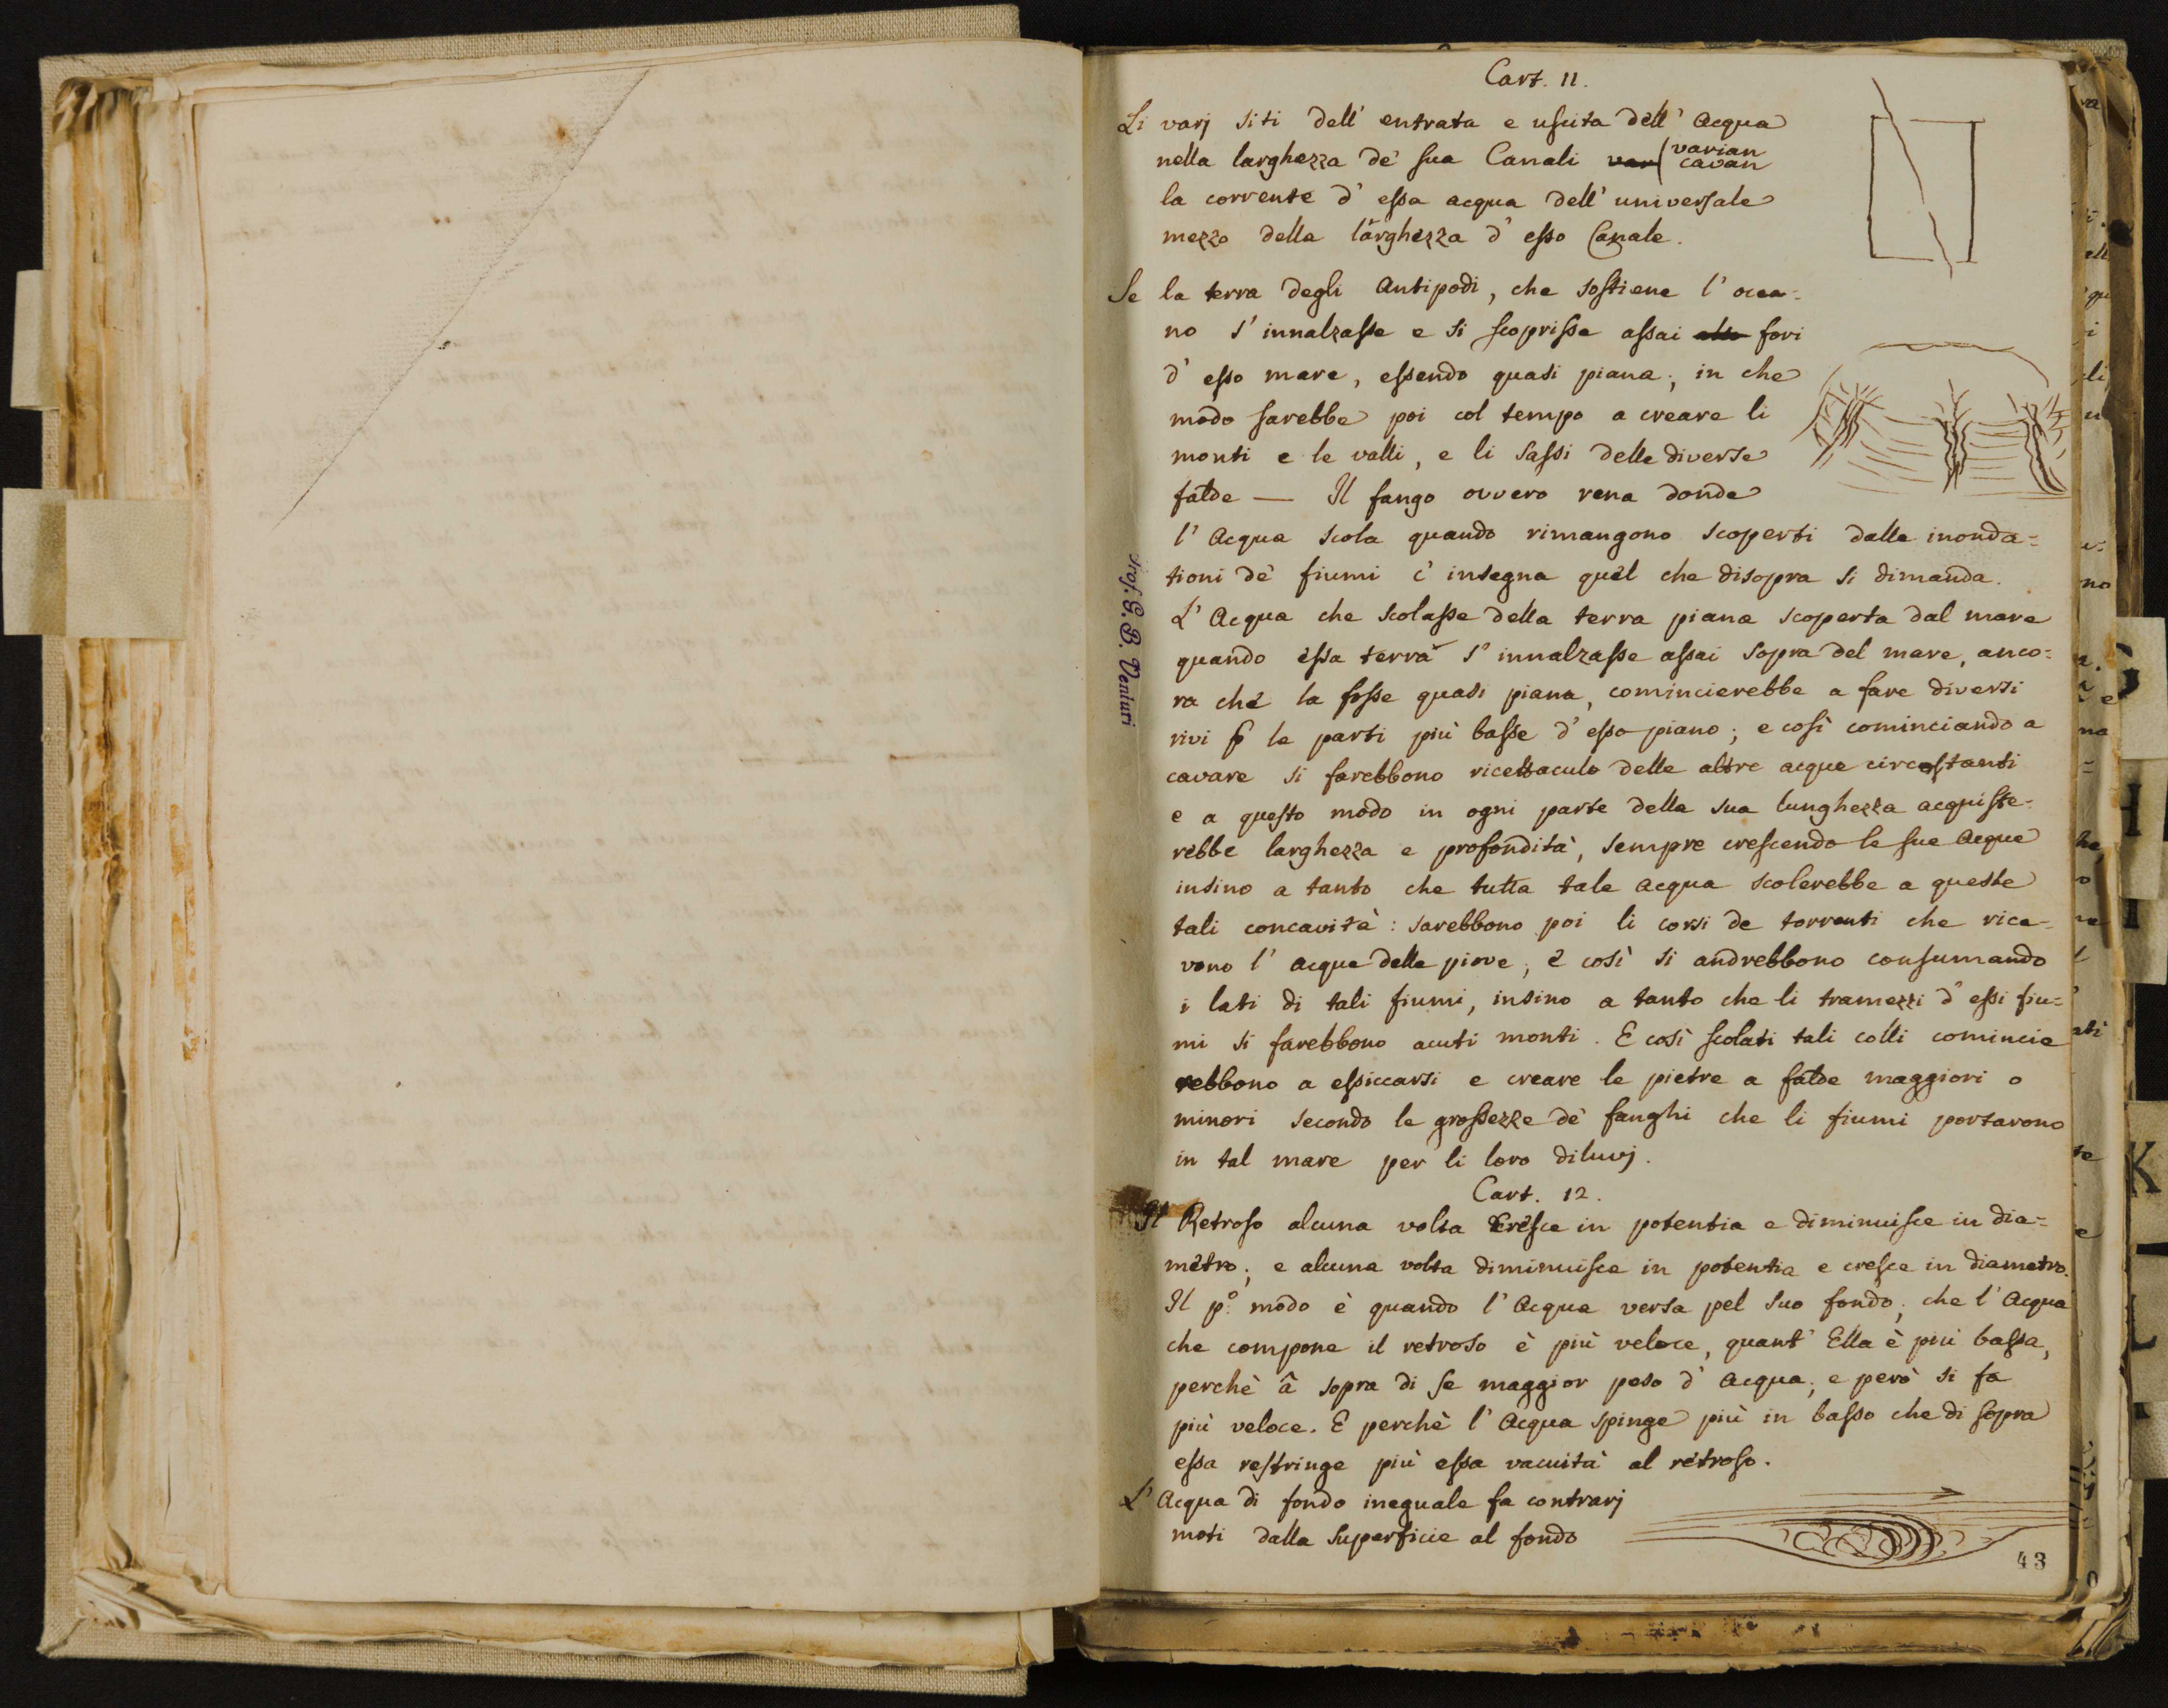 Cart. 11.
Li varj siti dell' entrata e uscita dell' Acqua
nella larghezza de' sua Canali var (varian
cavan
la corrente d' essa acqua dell' universale
mezzo della larghezza d' esso Canale.
Se la terra degli Antipodi, che sostiene l' ocea=
no s' innalzasse e si scoprisse assai alto fori
d' esso mare, essendo quasi piana; in che
modo sarebbe poi col tempo a creare li
monti e le valli, e li sassi delle diverse
falde — Il fango ovvero rena donde
l' Acqua scola quando rimangono scoperti dalle inonda=
tioni de' fiumi c' insegna quel che disopra si dimanda.
L' Acqua che scolasse della terra piana scoperta dal mare
quando essa terra s' innalzasse assai sopra del mare, anco=
ra che la fosse quasi piana, comincierebbe a fare diversi
rivi p le parti più basse d' esso piano; e così cominciando a
cavare si farebbono ricettaculo delle altre acque circostanti
e a questo modo in ogni parte della sua lunghezza acquiste=
rebbe larghezza e profondità, sempre crescendo le sue Acque
insino a tanto che tutta tale acqua scolerebbe a queste
tali concavità: sarebbono poi li corsi de torrenti che rice=
vono l' acque delle piove; e così si andrebbono consumando
i lati di tali fiumi, insino a tanto che li tramezzi d' essi fiu=
mi si farebbono acuti monti. E così scolati tali colli comincie
rebbono a essiccarsi e creare le pietre a falde maggiori o
minori secondo le grossezze de' fanghi che li fiumi portarono
in tal mare per li loro diluvj.
Cart. 12.
Il Retroso alcuna volta cresce in potentia e diminuisce in dia=
metro; e alcuna volta diminuisce in potentia e cresce in diametro.
Il p.º modo è quando l' Acqua versa pel suo fondo; che l' Acqua
che compone il retroso è più veloce, quant' Ella è più bassa,
perchè â sopra di se maggior peso d' Acqua; e però si fa
più veloce. E perchè l' Acqua spinge più in basso che di sopra
essa restringe più essa vacuità al retroso.
L' Acqua di fondo ineguale fa contrarj
moti dalla superficie al fondo
43
Prof. G. B. Venturi
K